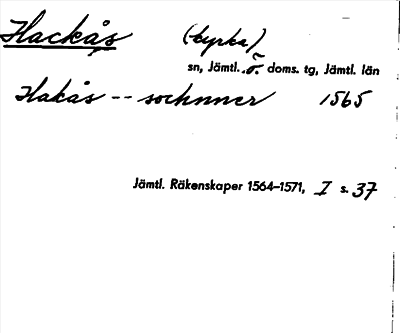 Hackås (kyrka)
sn, Jämtl. ö. doms. tg, Jämtl. län
Hakås -- socknner 1565
Jämtl. Räkenskaper 1564–1571, I s. 37